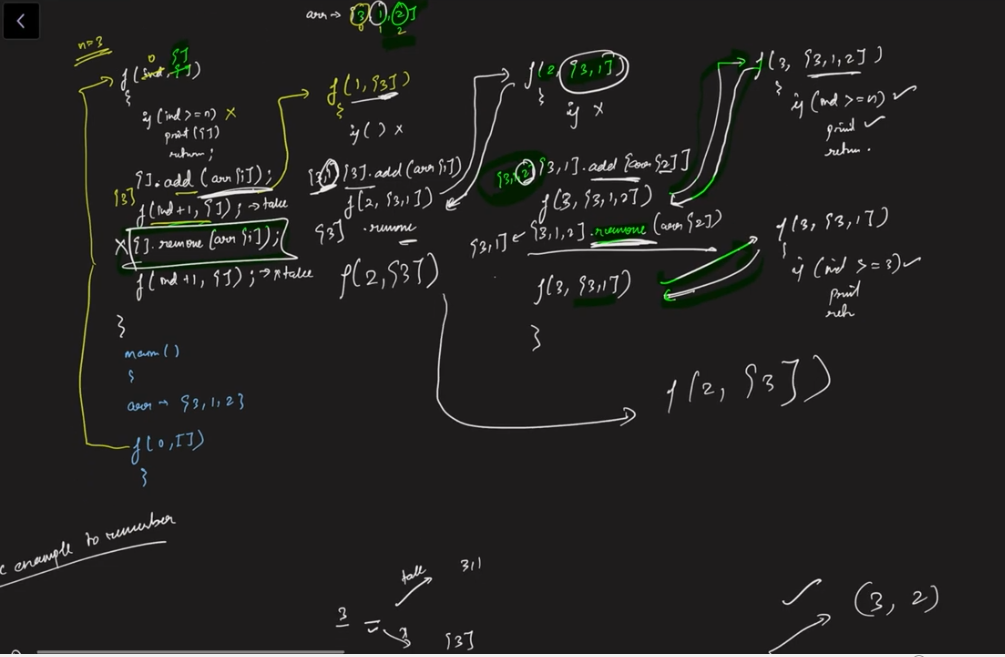 arr → [3, 1, 2]
0 1 2
n=3
0 []
f(ind, [])
{
if (ind >= n) x
print([])
return;
[].add(arr[i]);
[3]
f(ind+1, []); → take
x [].remove(arr[i]);
f(ind+1, []); → not take
}
main()
{
arr → {3,1,2}
f(0, [])
}
f(1, [3])
{
if() x
[3,1] [3].add(arr[i])
f(2, [3,1])
[3] .remove
f(2, [3])
f(2, [3,1])
{
if x
[3,1,2] [3,1].add(arr[2])
f(3, [3,1,2])
[3,1] ← [3,1,2].remove(arr[2])
f(3, [3,1])
}
f(3, [3,1,2])
{
if (ind >= n) ✓
print ✓
return.
f(3, [3,1])
{
if (ind >= 3) ✓
print
retn
f(2, [3])
c example to remember
3
take 3,1
x [3]
✓ (3, 2)